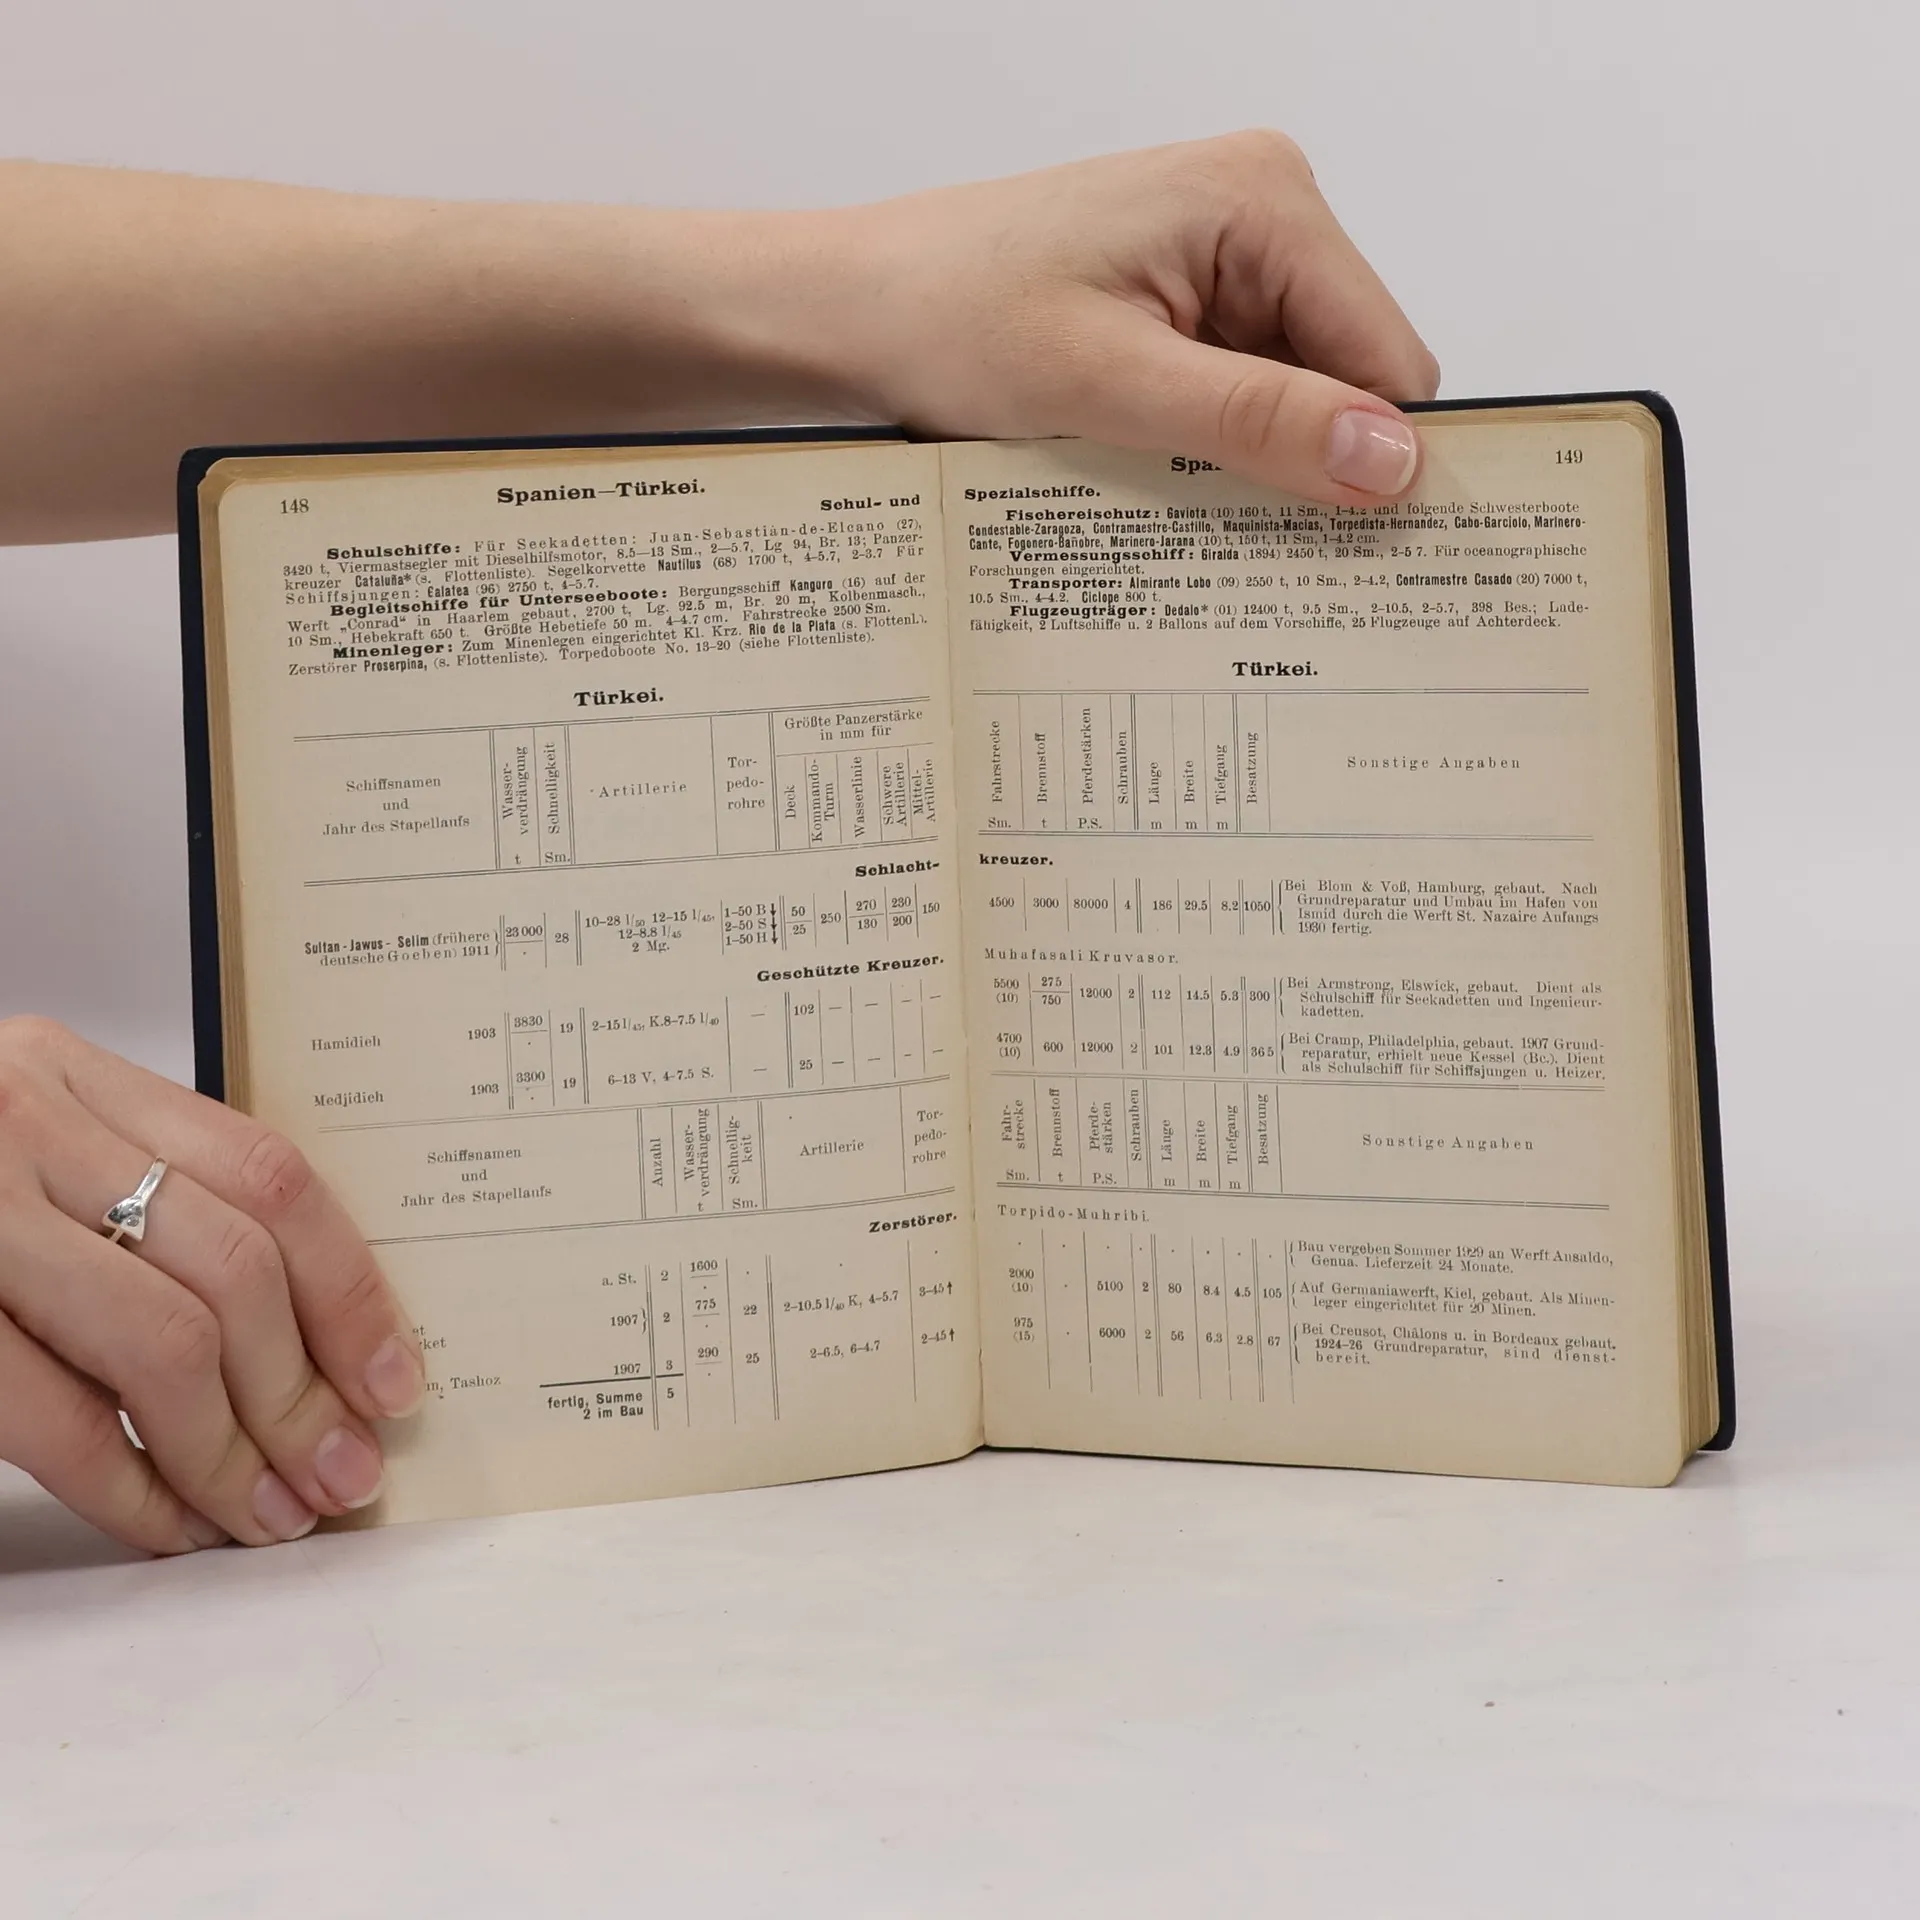 148
Spanien—Türkei.
Schul- und
Schulschiffe: Für Seekadetten: Juan-Sebastián-de-Elcano (27),
3420 t, Viermastsegler mit Dieselhilfsmotor, 8.5—13 Sm., 2—5.7, Lg 94, Br. 13; Panzer-
kreuzer Cataluña* (s. Flottenliste). Segelkorvette Nautilus (68) 1700 t, 4-5.7, 2-3.7 Für
Schiffsjungen: Galatea (96) 2750 t, 4-5.7.
Begleitschiffe für Unterseeboote: Bergungsschiff Kanguro (16) auf der
Werft „Conrad" in Haarlem gebaut, 2700 t, Lg. 92.5 m, Br. 20 m, Kolbenmasch.,
10 Sm., Hebekraft 650 t. Größte Hebetiefe 50 m. 4-4.7 cm. Fahrstrecke 2500 Sm.
Minenleger: Zum Minenlegen eingerichtet Kl. Krz. Rio de la Plata (s. Flottenl.).
Zerstörer Proserpina, (s. Flottenliste). Torpedoboote No. 13-20 (siehe Flottenliste).
Türkei.
Schiffsnamen und Jahr des Stapellaufs
Wasser-verdrängung t
Schnelligkeit Sm.
Artillerie
Tor-pedo-rohre
Größte Panzerstärke
in mm für
Deck
Kommando-Turm
Wasserlinie
Schwere Artillerie
Mittel-Artillerie
Schlacht-
Sultan-Jawus-Selim (frühere deutsche Goeben) 1911 23000 . 28 10–28 l/50 12–15 l/45, 12–8.8 l/45 2 Mg. 1–50 B↓ 2–50 S↓ 1–50 H↓ 50 25 250 270 130 230 200 150
Geschützte Kreuzer.
Hamidieh 1903 3830 . 19 2–15 l/45, K.8–7.5 l/40 — 102 — — — —
Medjidieh 1903 3300 . 19 6–13 V, 4-7.5 S. — 25 — — — —
Schiffsnamen und Jahr des Stapellaufs
Anzahl
Wasser-verdrängung t
Schnellig-keit Sm.
Artillerie
Tor-pedo-rohre
Zerstörer.
a. St. 2 1600 . . . .
1907} 2 775 . 22 2–10.5 l/40 K, 4–5.7 3–45↑
Tashoz 1907 3 290 . 25 2–6.5, 6–4.7 2–45↑
fertig, Summe 5
2 im Bau
149
Spezialschiffe.
Fischereischutz: Gaviota (10) 160 t, 11 Sm., 1–4.2 und folgende Schwesterboote
Condestable-Zaragoza, Contramaestre-Castillo, Maquinista-Macias, Torpedista-Hernandez, Cabo-Garciolo, Marinero-
Cante, Fogonero-Bañobre, Marinero-Jarana (10) t, 150 t, 11 Sm, 1-4.2 cm.
Vermessungsschiff: Giralda (1894) 2450 t, 20 Sm., 2-5 7. Für oceanographische
Forschungen eingerichtet.
Transporter: Almirante Lobo (09) 2550 t, 10 Sm., 2–4.2, Contramestre Casado (20) 7000 t,
10.5 Sm., 4–4.2. Ciclope 800 t.
Flugzeugträger: Dedalo* (01) 12400 t, 9.5 Sm., 2–10.5, 2–5.7, 398 Bes.; Lade-
fähigkeit, 2 Luftschiffe u. 2 Ballons auf dem Vorschiffe, 25 Flugzeuge auf Achterdeck.
Türkei.
Fahrstrecke Sm.
Brennstoff t
Pferdestärken P.S.
Schrauben
Länge m
Breite m
Tiefgang m
Besatzung
Sonstige Angaben
kreuzer.
4500 3000 80000 4 186 29.5 8.2 1050 Bei Blom & Voß, Hamburg, gebaut. Nach
Grundreparatur und Umbau im Hafen von
Ismid durch die Werft St. Nazaire Anfangs
1930 fertig.
Muhafasali Kruvasor.
5500 (10) 275 750 12000 2 112 14.5 5.3 300 Bei Armstrong, Elswick, gebaut. Dient als
Schulschiff für Seekadetten und Ingenieur-
kadetten.
4700 (10) 600 12000 2 101 12.8 4.9 365 Bei Cramp, Philadelphia, gebaut. 1907 Grund-
reparatur, erhielt neue Kessel (Bc.). Dient
als Schulschiff für Schiffsjungen u. Heizer.
Fahr-strecke Sm.
Brennstoff t
Pferde-stärken P.S.
Schrauben
Länge m
Breite m
Tiefgang m
Besatzung
Sonstige Angaben
Torpido-Muhribi.
. . . . . . . . Bau vergeben Sommer 1929 an Werft Ansaldo,
Genua. Lieferzeit 24 Monate.
2000 (10) . 5100 2 80 8.4 4.5 105 Auf Germaniawerft, Kiel, gebaut. Als Minen-
leger eingerichtet für 20 Minen.
975 (15) . 6000 2 56 6.3 2.8 67 Bei Creusot, Châlons u. in Bordeaux gebaut.
1924–26 Grundreparatur, sind dienst-
bereit.